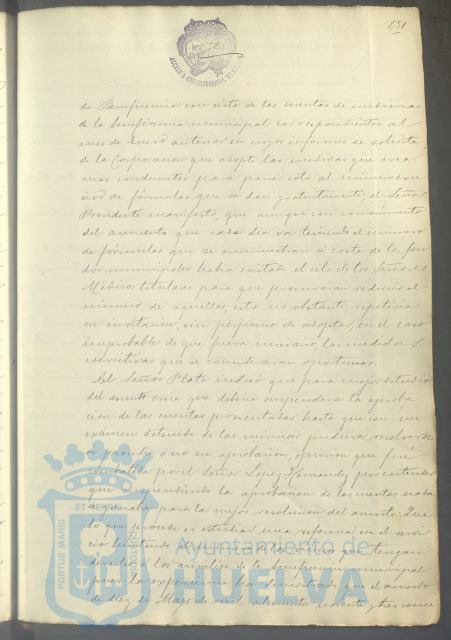 431
ALCALDIA CONSTITUCIONAL DE
de Beneficencia con vista de las cuentas de medicinas
de la beneficencia municipal correspondientes al
mes de Enero anterior en cuyos informes se solicita
de la Corporacion que adopte las medidas que crea
mas conducentes para poner coto al número exce
sivo de fórmulas que se dan gratuitamente, el Señor
Presidente manifestó, que aunque con conocimiento
del aumento que cada dia va teniendo el número
de fórmulas que se suministran á costa de los fon
dos municipales habia excitado el celo de los Señores
Médicos titulares para que procuraran reducir el
número de aquellas, esto no obstante, repetiria
su invitacion, sin perjuicio de adoptar, en el caso
improbable de que fuera necesario, las medidas
coercitivas que se consideraran oportunas.
El Señor Plata indicó que para mejor estudio
del asunto creia que deberia suspenderse la aproba
cion de las cuentas presentadas hasta que con un
exámen detenido de las mismas pudiera resolverse
si procedia ó no su aprobacion, opinion que fué
combatida por el Señor Lopez Hernandez por entender
que suspendiendo la aprobacion de las cuentas nada
se adelantaba para la mejor resolucion del asunto: Que
lo que procede es estudiar una reforma en el servi
cio limitando el número de los vecinos que tengan
derecho á los auxilios de la beneficencia municipal
pues la experiencia ha demostrado que el acuerdo
de diez de Mayo de mil ochocientos noventa y tres
PORTUS MARIS
ET
CUSTODIA
Ayuntamiento de
HUELVA